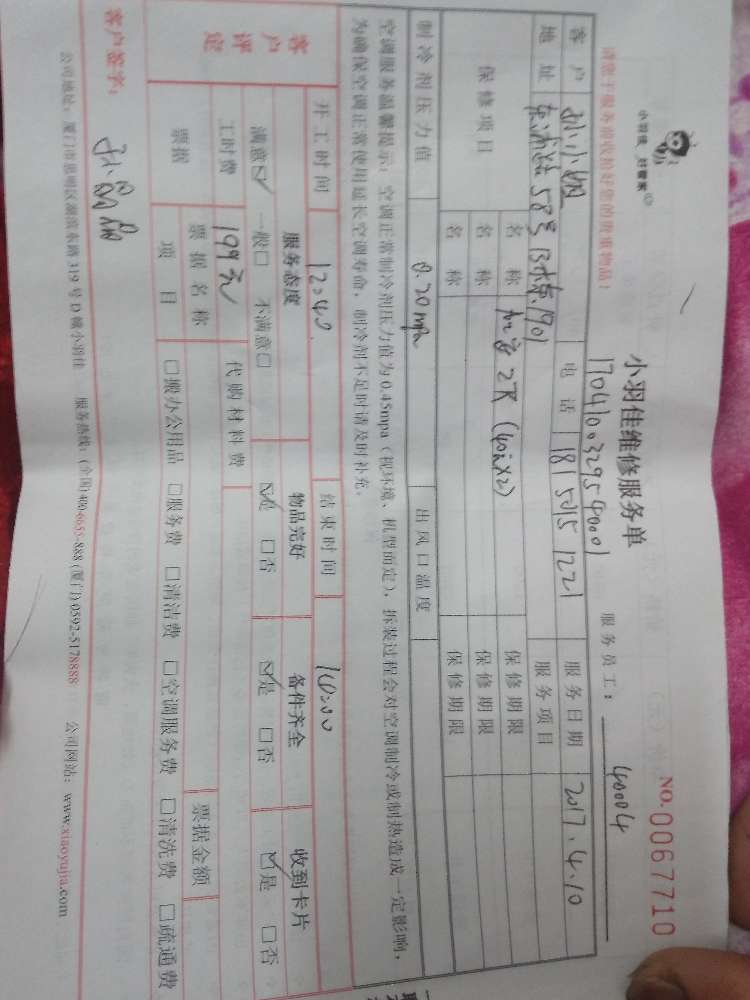 小羽佳 好管家
小羽佳维修服务单
NO.0067710
1704100329540001
请您于服务前收拾好您的贵重物品!
服务员工: 40004
客户 孙小姐 电话 18150151221 服务日期 2017.4.10
地址 58号13栋1701 服务项目
保修项目 名称 加雪2次(40x2) 保修期限
名称 保修期限
名称 保修期限
制冷剂压力值 0.20mpa 出风口温度
空调服务温馨提示:空调正常制冷剂压力值为0.45mpa(视环境、机型而定),拆装过程会对空调制冷或制热造成一定影响,
为确保空调正常使用延长空调寿命,制冷剂不足时请及时补充。
开工时间 12:40 结束时间 14:00
客户评定 服务态度 物品完好 备件齐全 收到卡片
满意☑ 一般□ 不满意□ ☑是 □否 ☑是 □否 ☑是 □否
工时费 199元 代购材料费
票据 票据名称 票据金额
项目 □搬办公用品 □服务费 □清洁费 □空调服务费 □清洗费 □疏通费
客户签字:
公司地址:厦门市思明区湖滨东路319号D幢小羽佳 服务热线:(全国)400-6655-888 (厦门)0592-5178888 公司网站:www.xiaoyujia.com